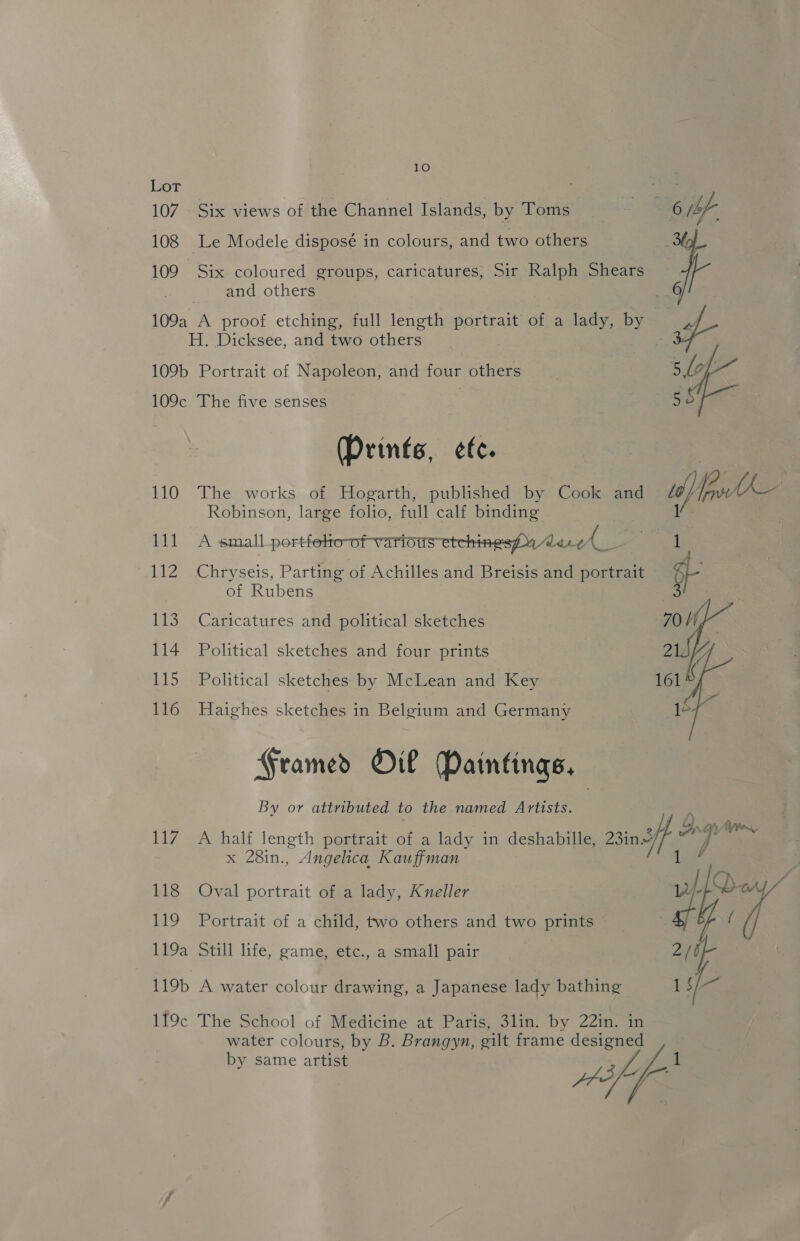 10
Lot
107 Six views of the Channel Islands, by Toms 6
108 Le Modele disposé in colours, and two others 3
109 Six coloured groups, caricatures, Sir Ralph Shears
and others 6
109a A proof etching, full length portrait of a lady, by
H. Dicksee, and two others 3
109b Portrait of Napoleon, and four others 5
109c The five senses 5
Prints, etc.
110 The works of Hogarth, published by Cook and
Robinson, large folio, full calf binding 1
111 A small portfolio of various etchings 1
112 Chryseis, Parting of Achilles and Breisis and portrait
of Rubens 3
113 Caricatures and political sketches 70
114 Political sketches and four prints 21
115 Political sketches by McLean and Key 161
116 Haighes sketches in Belgium and Germany 1
Framed Oil Paintings,
By or attributed to the named Artists.
117 A half length portrait of a lady in deshabille, 23in.
x 28in., Angelica Kauffman 1
118 Oval portrait of a lady, Kneller
119 Portrait of a child, two others and two prints
119a Still life, game, etc., a small pair 2
119b A water colour drawing, a Japanese lady bathing 1
119c The School of Medicine at Paris, 31in. by 22in. in
water colours, by B. Brangyn, gilt frame designed
by same artist 1